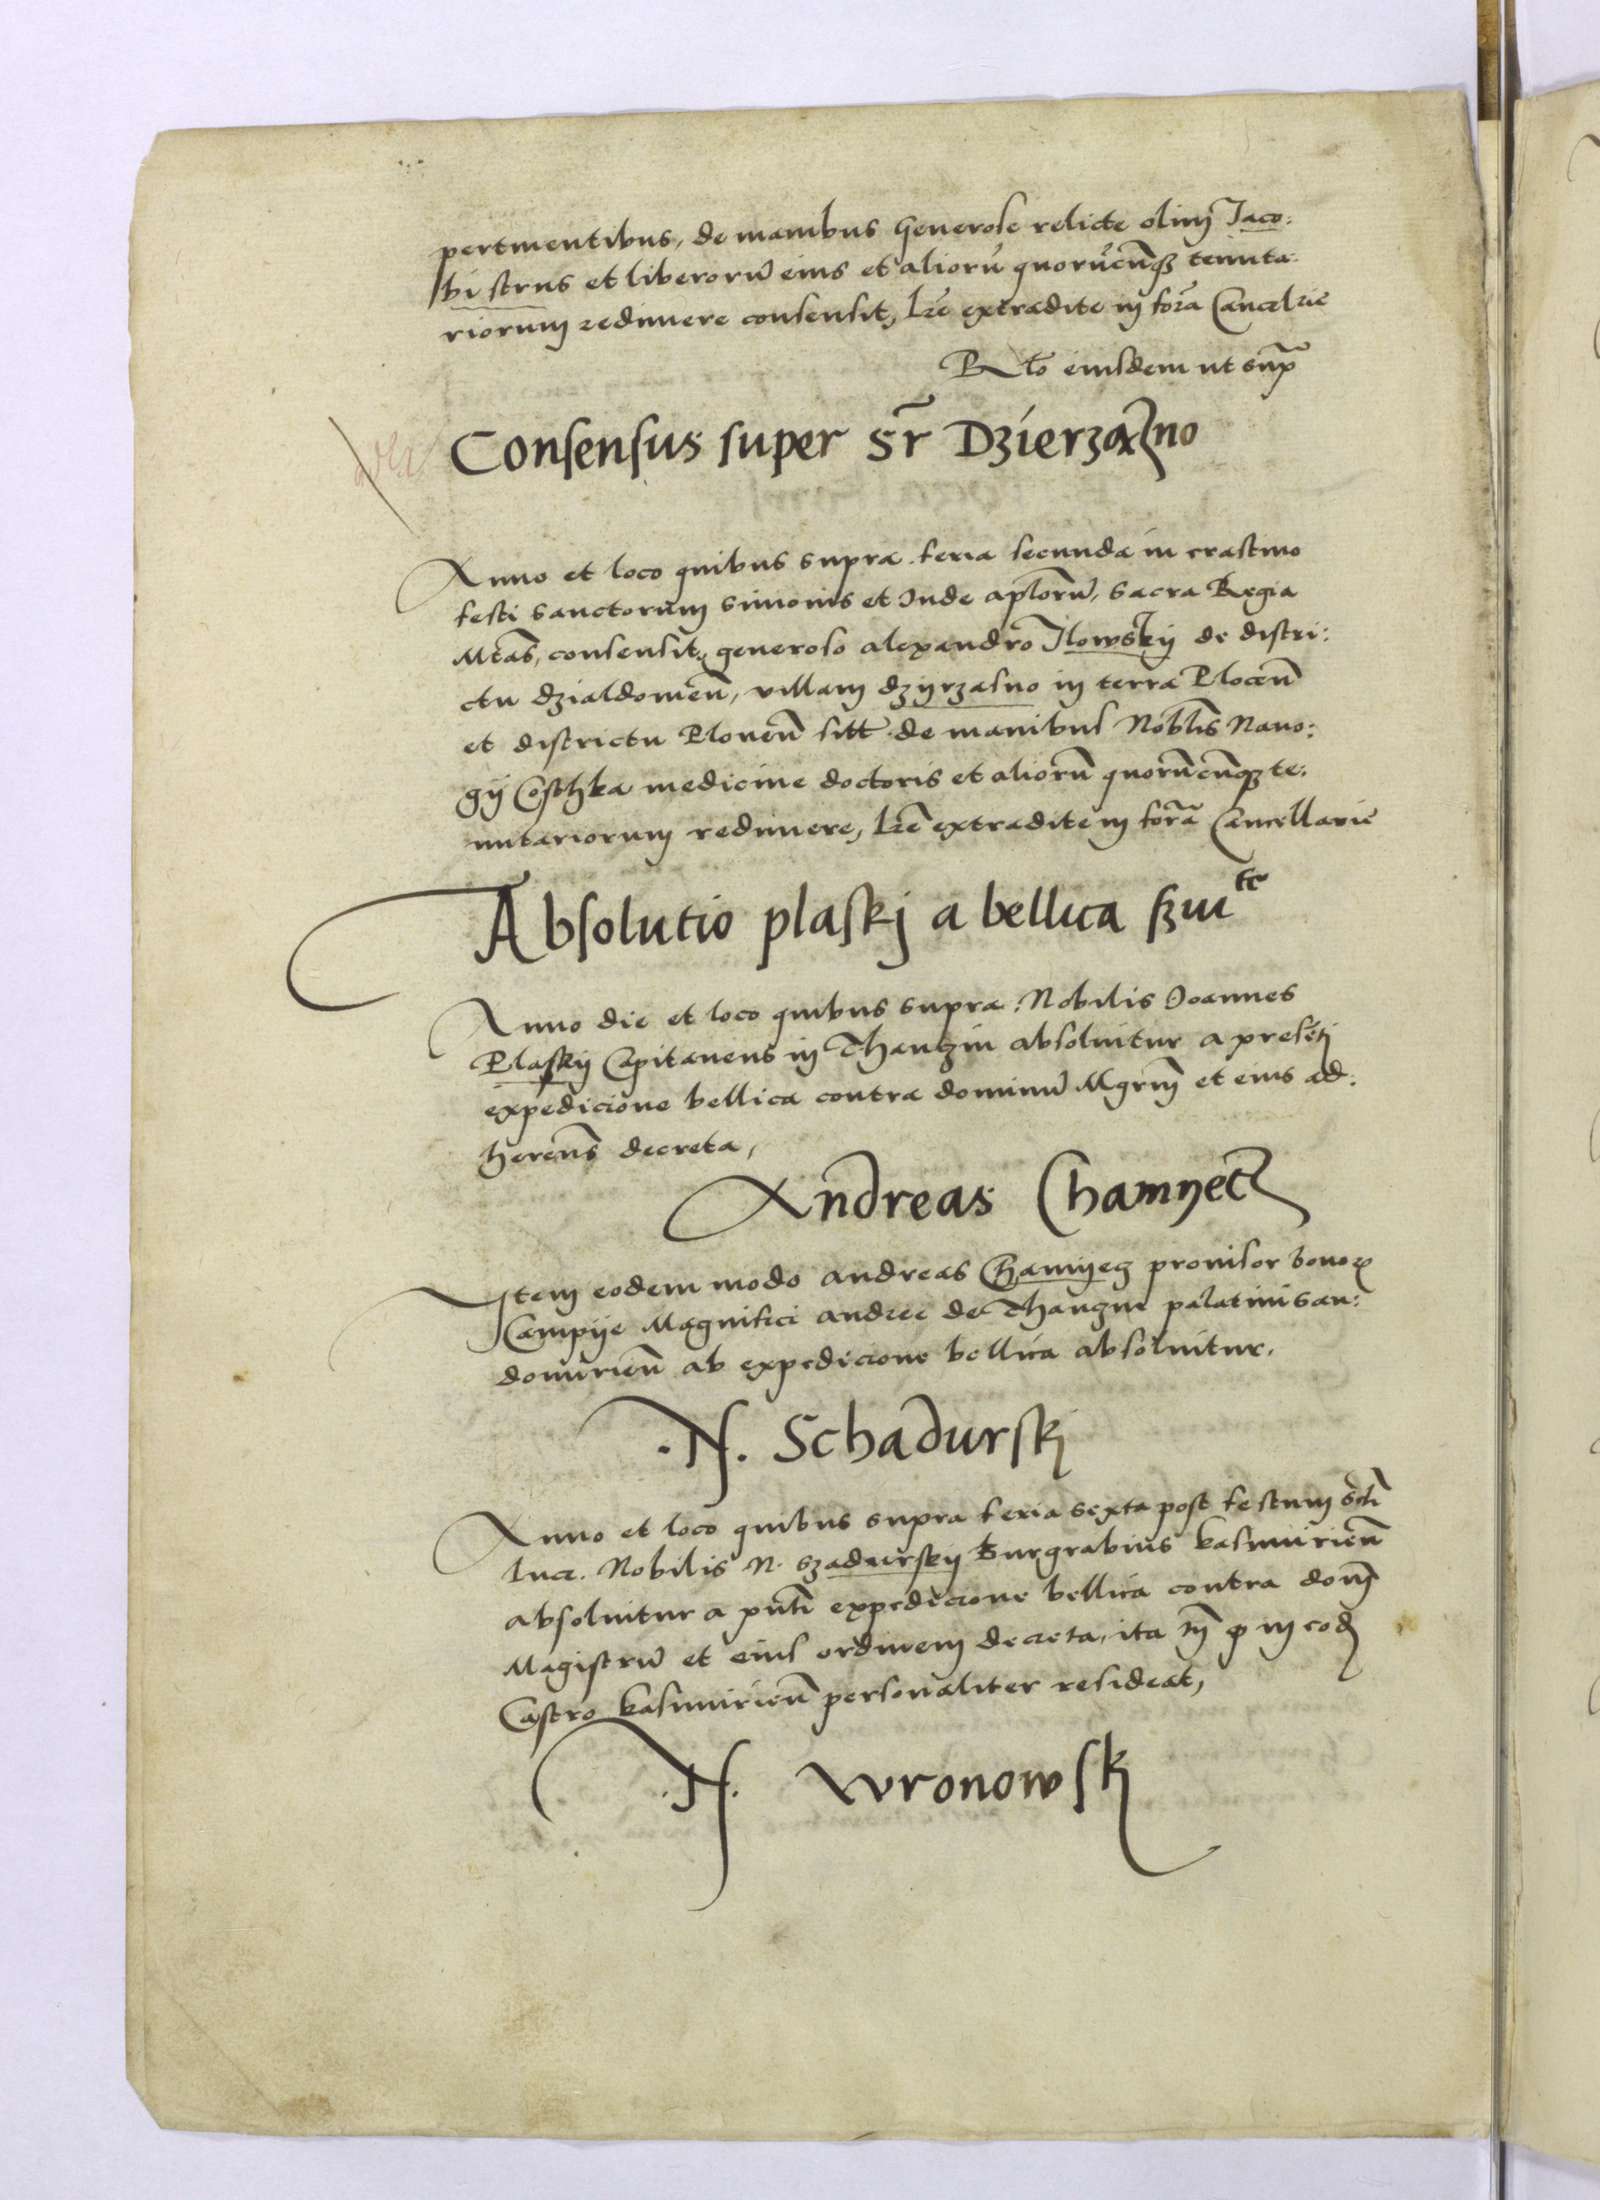 pertinentibus, de manibus Generose relicte olim Jaco:
bi strus et liberorũ eius et aliorũ quorũcũqꝫ tenuta:
riorum redimere consensit, Lr̃e extradite in for̃a Cancel̃rie
Rel̃o eiusdem ut sup̃
Consensus super Sr̃ Dzierzaʒno
Anno et loco quibus supra feria secunda in crastino
festi sanctorum Simonis et Jude apl̃orũ, Sacra Regia
Mtas̃, consensit, generoso alexandro Jlowskij de distri:
ctu dzialdowieñ, villam dzijrzasno in terra Ploceñ
et districtu Ploneñ sitt̃ de manibus Nobl̃is
medicine doctoris et aliorũ quorũcũqꝫ te:
nutariorum redimere, Lr̃e extradite in for̃a Cancellarie
Absolutio plaskj a bellica
Anno die et loco quibus supra: Nobilis Joannes
Plaskij Capitaneus in Thanczin absoluitur a preseñtj
expedicione bellica contra dominũ Mgrm̃ et eius ad:
hereñs decreta,
Andreas Chamyecz
Jtem eodem modo andreas Chamijecz prouisor bonoꝝ
Campije Magnifici andree de Thanczin palatini san:
domirieñ ab expedicione bellica absoluitur.
.N. Schadurskj
Anno et loco quibus supra feria sexta post festum sc̃ti
Luce. Nobilis N. szadurskij Burgrabius kasimirieñ
absoluitur a pñti expedicione bellica contra dom̃
Magistrũ et eius ordinem decreta, ita tm̃ ꝙ in eod̃
Castro kasimirieñ personaliter resideat,
.N. Wronowskj